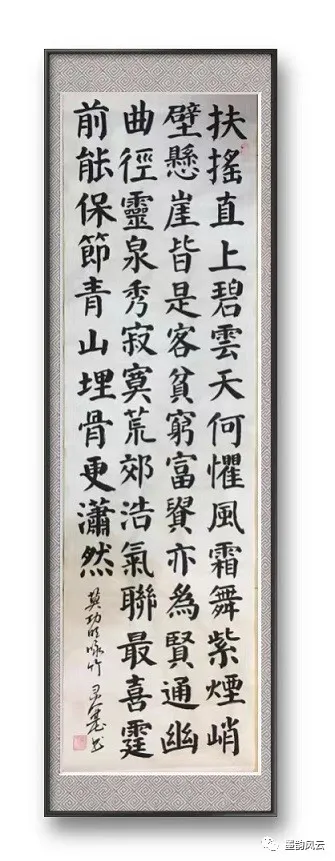 扶搖直上碧雲天何懼風霜舞紫煙峭
壁懸崖皆是客貧窮富貲亦為賢通幽
曲徑靈泉秀寂寞荒郊浩氣聯最喜霆
前能保節青山埋骨更瀟然
莫功咏竹
书
墨韵风云